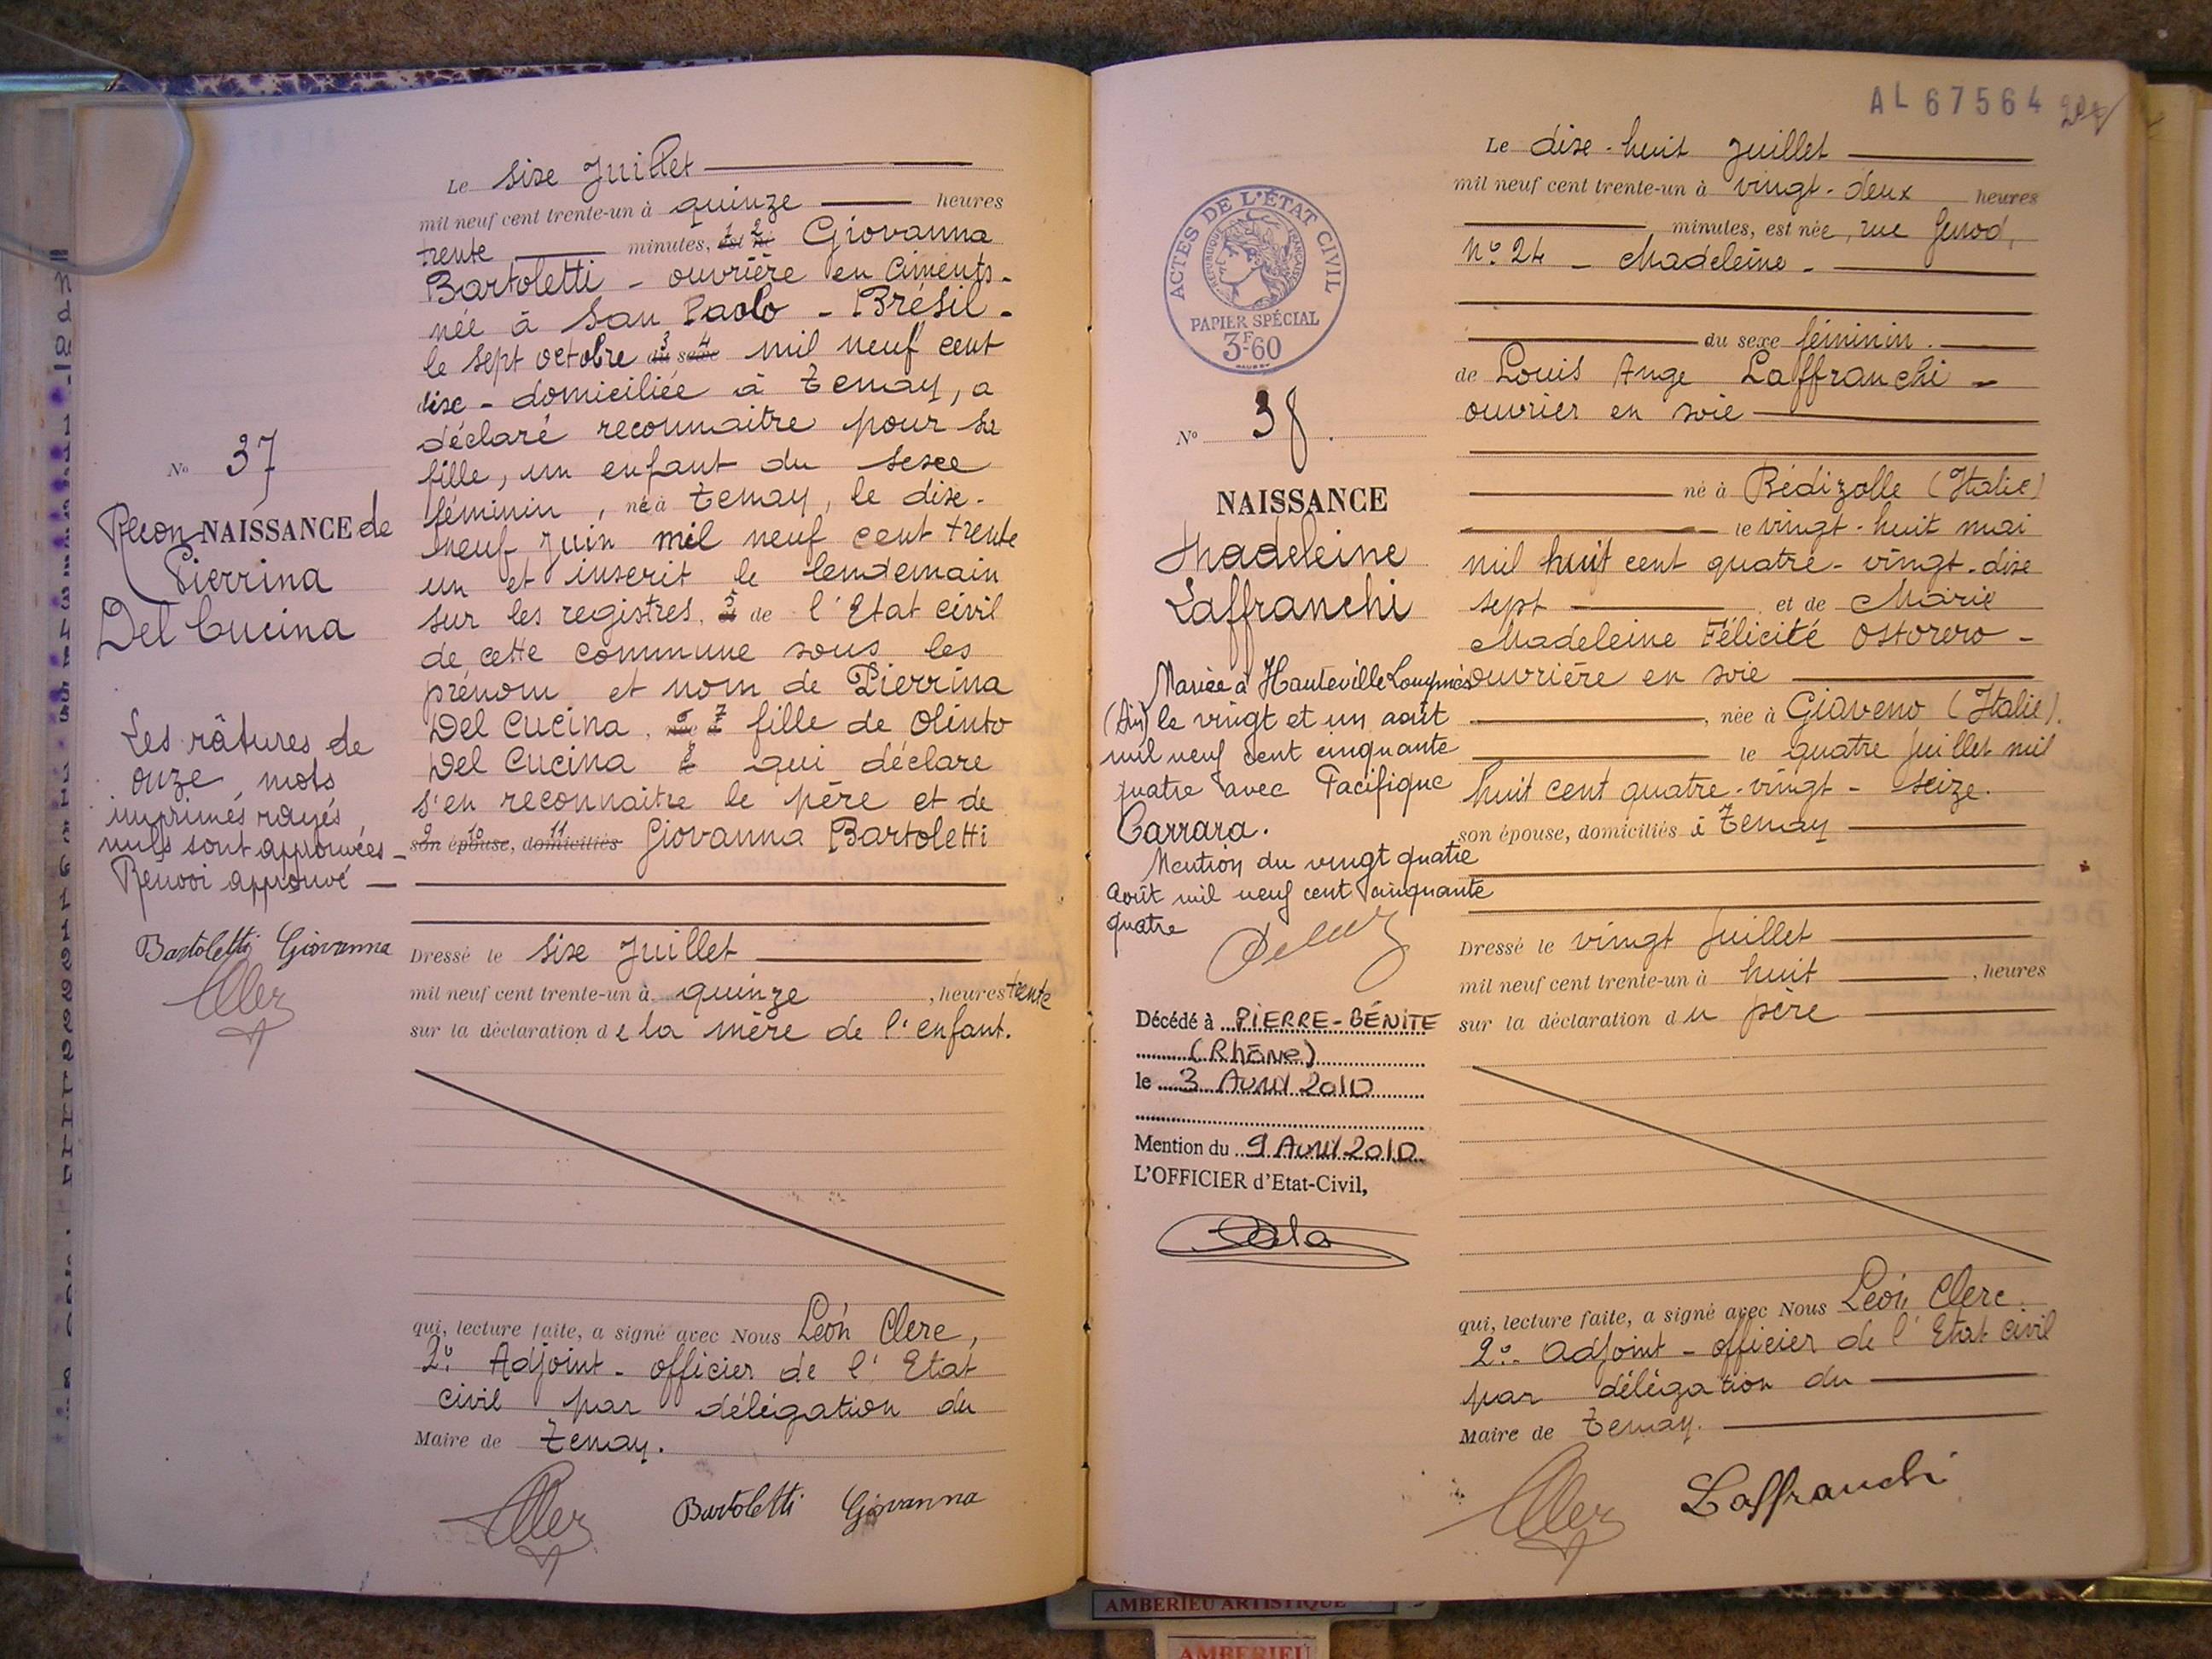 Le sixe Juillet
mil neuf cent trente-un à quinze heures
trente minutes, 1 2 est né Giovanna
Bartoletti - ouvrière en ciments -
née à San Paolo - Brésil -
le sept octobre 3 4 du sexe mil neuf cent
dixe - domiciliée à Tenay, a
déclaré reconnaitre pour sa
fille, un enfant du sexe
féminin, né à Tenay, le dixe-
neuf Juin mil neuf cent trente
un et inscrit le lendemain
sur les registres, 5 de l'Etat civil
de cette commune sous les
prénom et nom de Pierrina
Del Cucina, 6 7 fille de Olinto
Del Cucina 8 qui déclare
s'en reconnaitre le père et de
9 10 11 son épouse, domiciliés Giovanna Bartoletti
Dressé le sixe Juillet
mil neuf cent trente-un à quinze, heures trente
sur la déclaration de la mère de l'enfant.
qui, lecture faite, a signé avec Nous Léon Clerc,
2e Adjoint - officier de l'Etat
civil par délégation du
Maire de Tenay.
Bartoletti Giovanna
No 37
Recon NAISSANCE de
Pierrina
Del Cucina
Les râtures de
onze mots
imprimés rayés
nuls sont approuvées -
Renvoi approuvé -
Bartoletti Giovanna
AL 67564
ACTES DE L'ÉTAT CIVIL
RÉPUBLIQUE FRANÇAISE
PAPIER SPÉCIAL
3F60
No 38.
NAISSANCE
Madeleine
Laffranchi
Mariée à Hauteville Lompnes
(Ain) le vingt et un août
mil neuf cent cinquante
quatre avec Pacifique
Carrara.
Mention du vingt quatre
Août mil neuf cent cinquante
quatre
Décédé à PIERRE-BÉNITE
(Rhône)
le 3 Avril 2010
Mention du 9 Avril 2010
L'OFFICIER d'Etat-Civil,
Le dixe-huit Juillet
mil neuf cent trente-un à vingt-deux heures
minutes, est née, rue Genod,
No 24 - Madeleine -
du sexe féminin.
de Louis Ange Laffranchi -
ouvrier en soie
né à Bédizolle (Italie)
le vingt-huit mai
mil huit cent quatre-vingt-dixe
sept et de Marie
Madeleine Félicité Ostorero -
ouvrière en soie
, née à Giaveno (Italie).
le quatre Juillet mil
huit cent quatre-vingt-seize.
son épouse, domiciliés à Tenay
Dressé le vingt Juillet
mil neuf cent trente-un à huit, heures
sur la déclaration du père
qui, lecture faite, a signé avec Nous Léon Clerc.
2e adjoint - officier de l'Etat civil
par délégation du
Maire de Tenay.
Laffranchi
AMBERIEU ARTISTIQUE
AMBERIEU